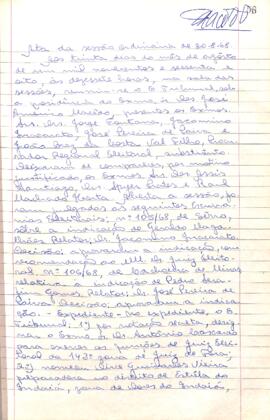 96
Ata da sessão ordinária de 30-8-68.
Aos trinta dias do mês de agôsto
de um mil novecentos e sessenta e
oito, às dezessete horas, na sala das
sessões, reuniu-se o E. Tribunal, sob
a presidência do Exmo. Sr. Des. José
Américo Macêdo, presentes os Exmos.
Srs. Drs. Jorge Jacomino
Inocêncio, José Pereira de Paiva e
João Braz da Costa Val Filho, Procu-
rador Regional Eleitoral, substituto.
Deixaram de comparecer, por motivo
justificado, os Exmos. Srs. Des.
Santiago, Drs. e
Machado Horta. Aberta a sessão, fo-
ram julgados os seguintes
nºs 105/68, do Sêrro,
sôbre a indicação de Geraldo Maga-
lhães. Relator, Dr. Jacomino Inocêncio.
Decisão: aprovaram a indicação, com
recomendação ao MM. Dr. Juiz Eleito-
ral. Nº 106/68, de Cachoeira de Minas,
relativa a indicação de Pedro
Gomes. Relator, Dr. José Pereira de
Paiva. Decisão: aprovaram a indica-
ção. - Expediente - No expediente, o E.
Tribunal: 1º) por votação secreta, desig-
nou o Exmo. Sr. Dr. Antônio
para exercer as funções de Juiz Elei-
toral da 142ª zona
2º) nomeou Guimarães Vieira
preparadora no distrito de Estrêla do
Indaiá, zona de Dores do Indaiá,